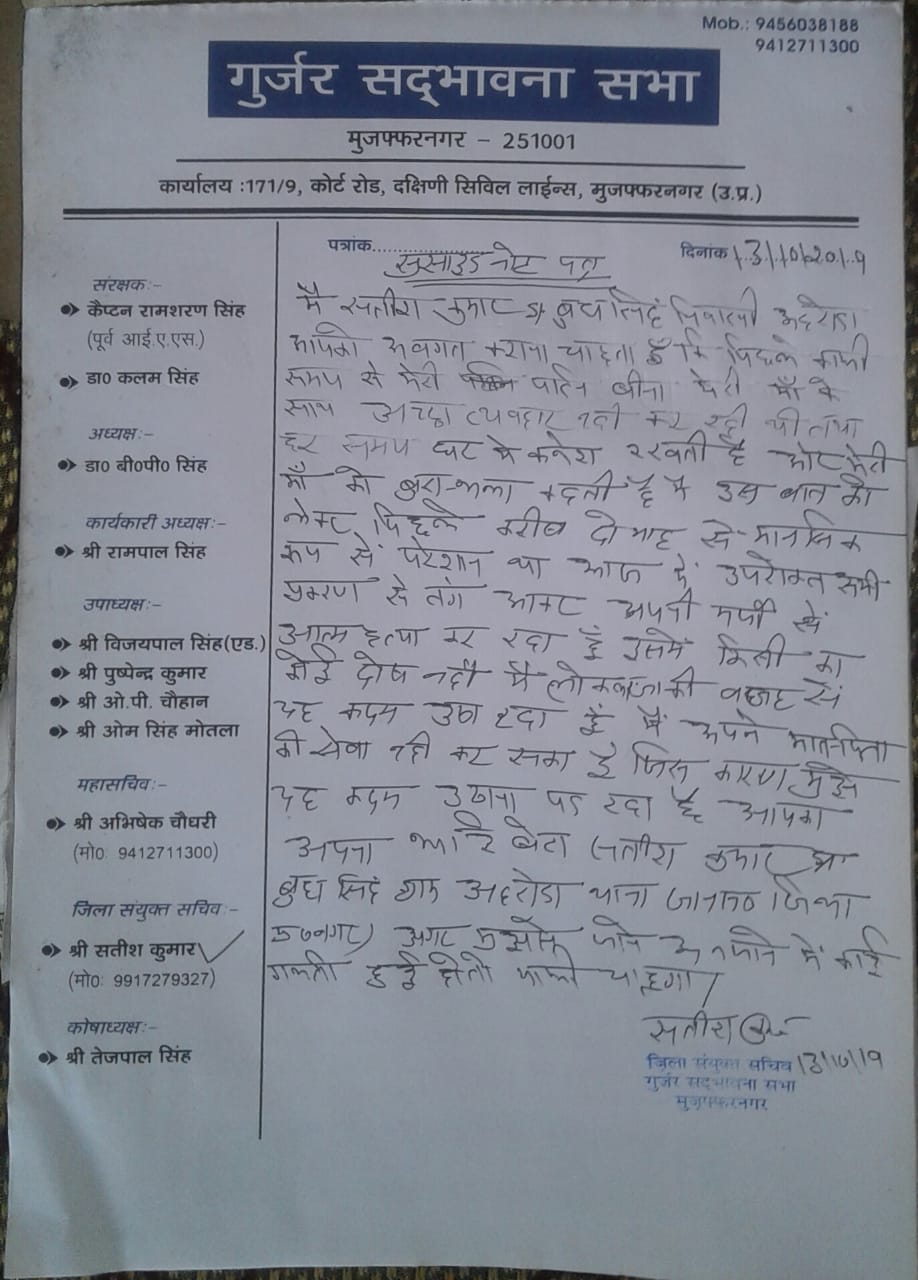 Mob.: 9456038188
9412711300
गुर्जर सद्भावना सभा
मुजफ्फरनगर – 251001
कार्यालय :171/9, कोर्ट रोड, दक्षिणी सिविल लाईन्स, मुजफ्फरनगर (उ.प्र.)
पत्रांक..................
दिनांक 13/10/2019
सुसाइड नोट पत्र
संरक्षक:-
कैप्टन रामशरण सिंह
(पूर्व आई.ए.एस.)
डा० कलम सिंह
अध्यक्ष:-
डा० बी०पी० सिंह
कार्यकारी अध्यक्ष:-
श्री रामपाल सिंह
उपाध्यक्ष:-
श्री विजयपाल सिंह(एड.)
श्री पुष्पेन्द्र कुमार
श्री ओ.पी. चौहान
श्री ओम सिंह मोतला
महासचिव:-
श्री अभिषेक चौधरी
(मो० 9412711300)
जिला संयुक्त सचिव:-
श्री सतीश कुमार
(मो० 9917279327)
कोषाध्यक्ष:-
श्री तेजपाल सिंह
मै सतीश कुमार बुध सिंह निवासी
आपको अवगत कराना चाहता हूँ कि पिछले काफी
समय से मेरी पत्नि बीना मेरी माँ के
साथ अच्छा व्यवहार नही कर रही थी तथा
हर समय घर मे कलेश रखती है और मेरी
माँ को बुरा-भला कहती है मै इस बात को
लेकर पिछले करीब दो माह से मानसिक
रूप से परेशान था आज मैं उपरोक्त सभी
प्रकरण से तंग आकर अपनी मर्जी से
आत्म हत्या कर रहा हूँ इसमें किसी का
कोई दोष नही मै लोकलाज की वजह से
यह कदम उठा रहा हूँ मैं अपने माता-पिता
की सेवा नही कर सका हूँ जिस कारण मुझे
यह कदम उठाना पड रहा है आपका
अपना बेटा सतीश कुमार
बुध सिंह ग्राम थाना जानसठ जिला
अगर मुझसे जाने अनजाने में कोई
गलती हुई हो तो माफी चाहूंगा
सतीश
जिला संयुक्त सचिव 13/10/19
गुर्जर सद्भावना सभा
मुजफ्फरनगर